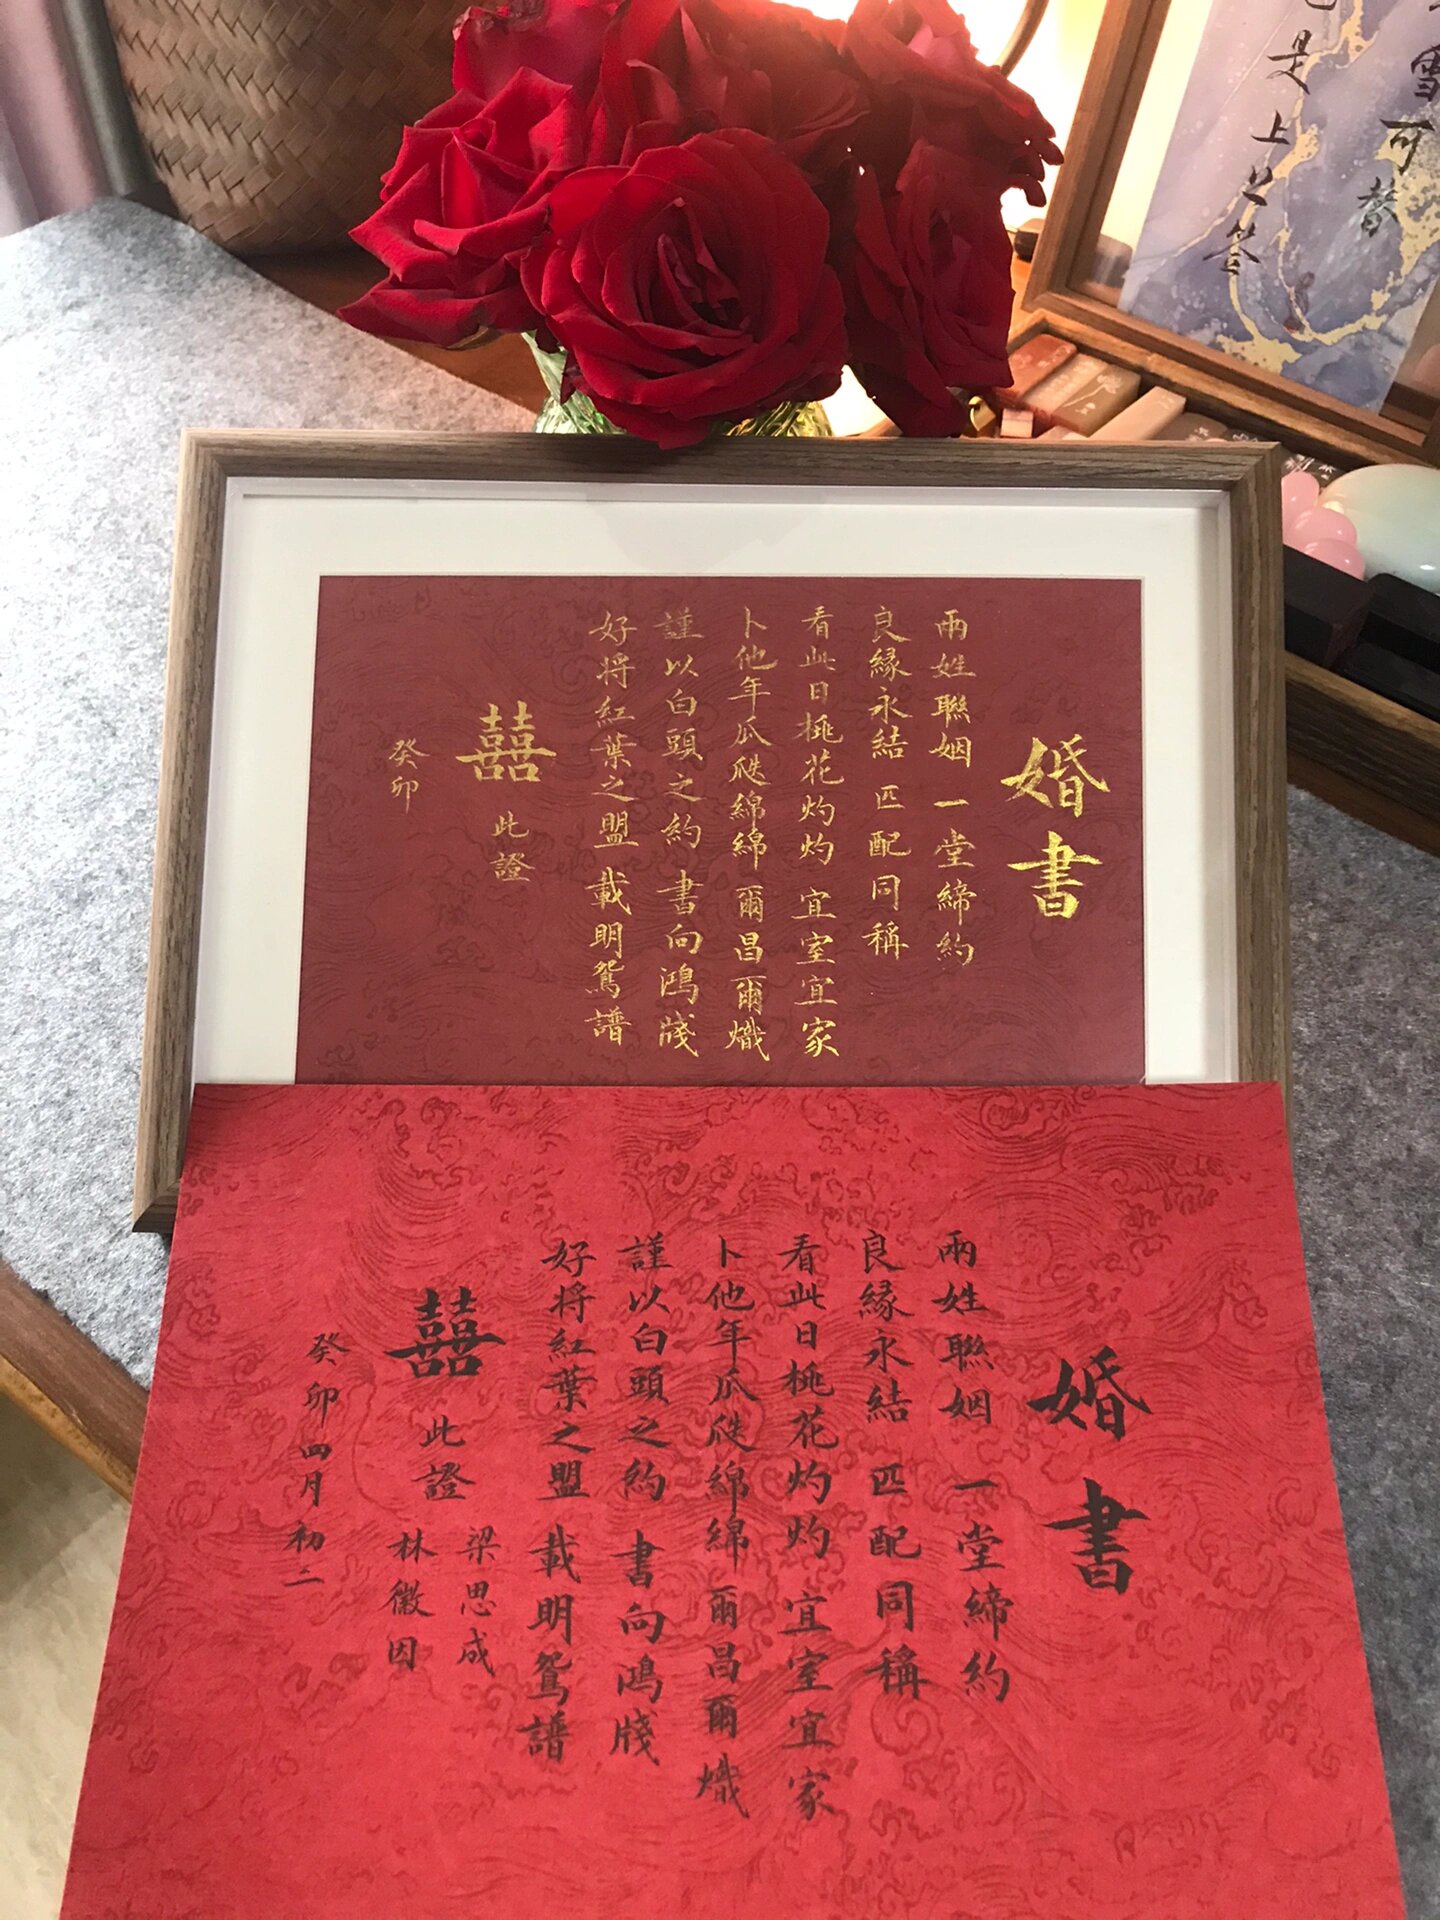 婚書
兩姓聯姻 一堂締約
良緣永結 匹配同稱
看此日桃花灼灼 宜室宜家
卜他年瓜瓞綿綿 爾昌爾熾
謹以白頭之約 書向鴻牋
好將紅葉之盟 載明鴛譜
囍 此證
癸卯
婚書
兩姓聯姻 一堂締約
良緣永結 匹配同稱
看此日桃花灼灼 宜室宜家
卜他年瓜瓞綿綿 爾昌爾熾
謹以白頭之約 書向鴻牋
好將紅葉之盟 載明鴛譜
囍 此證
梁思成
林徽因
癸卯四月初二
雪可替
是上上簽